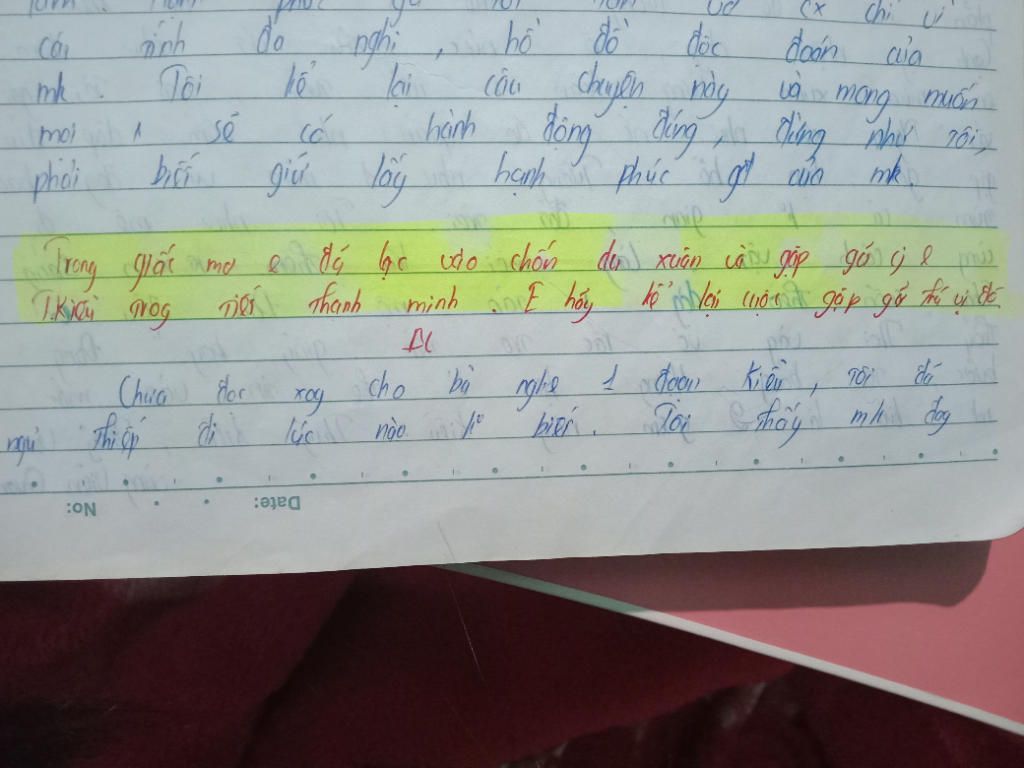 cái tính đa nghi, hồ đồ độc đoán của
mk. Tôi kể lại câu chuyện này và mong muốn
mọi ng sẽ có hành động đúng, đừng như tôi,
phải biết giữ lấy hạnh phúc gđ của mk.
Trong giấc mơ e đã lạc vào chốn du xuân và gặp gỡ cj e
T.Kiều trog tiết thanh minh. E hãy kể lại cuộc gặp gỡ thú vị đó.
Chưa đọc xog cho bà nghe 1 đoạn Kiều, tôi đã
ngủ thiếp đi lúc nào k° biết. Tôi thấy mk đag
No: Date: